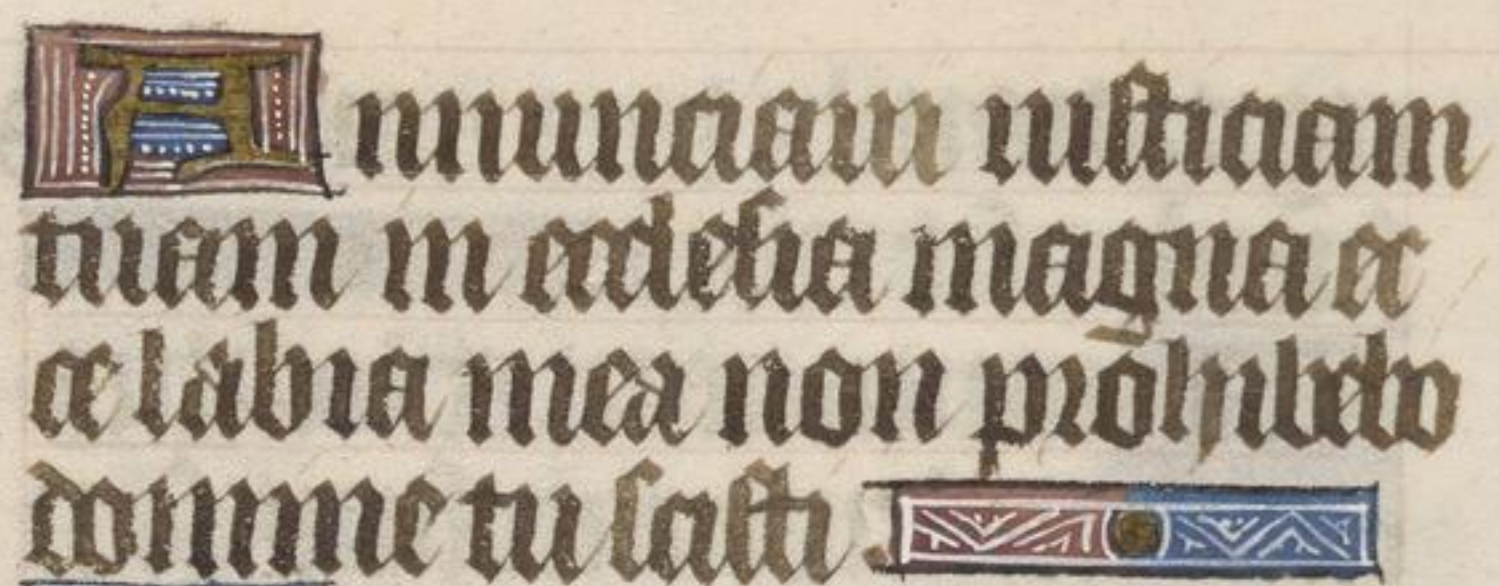 Annunciaui iusticiam
tuam in ecclesia magna ec
ce labia mea non prohibebo
domine tu scisti